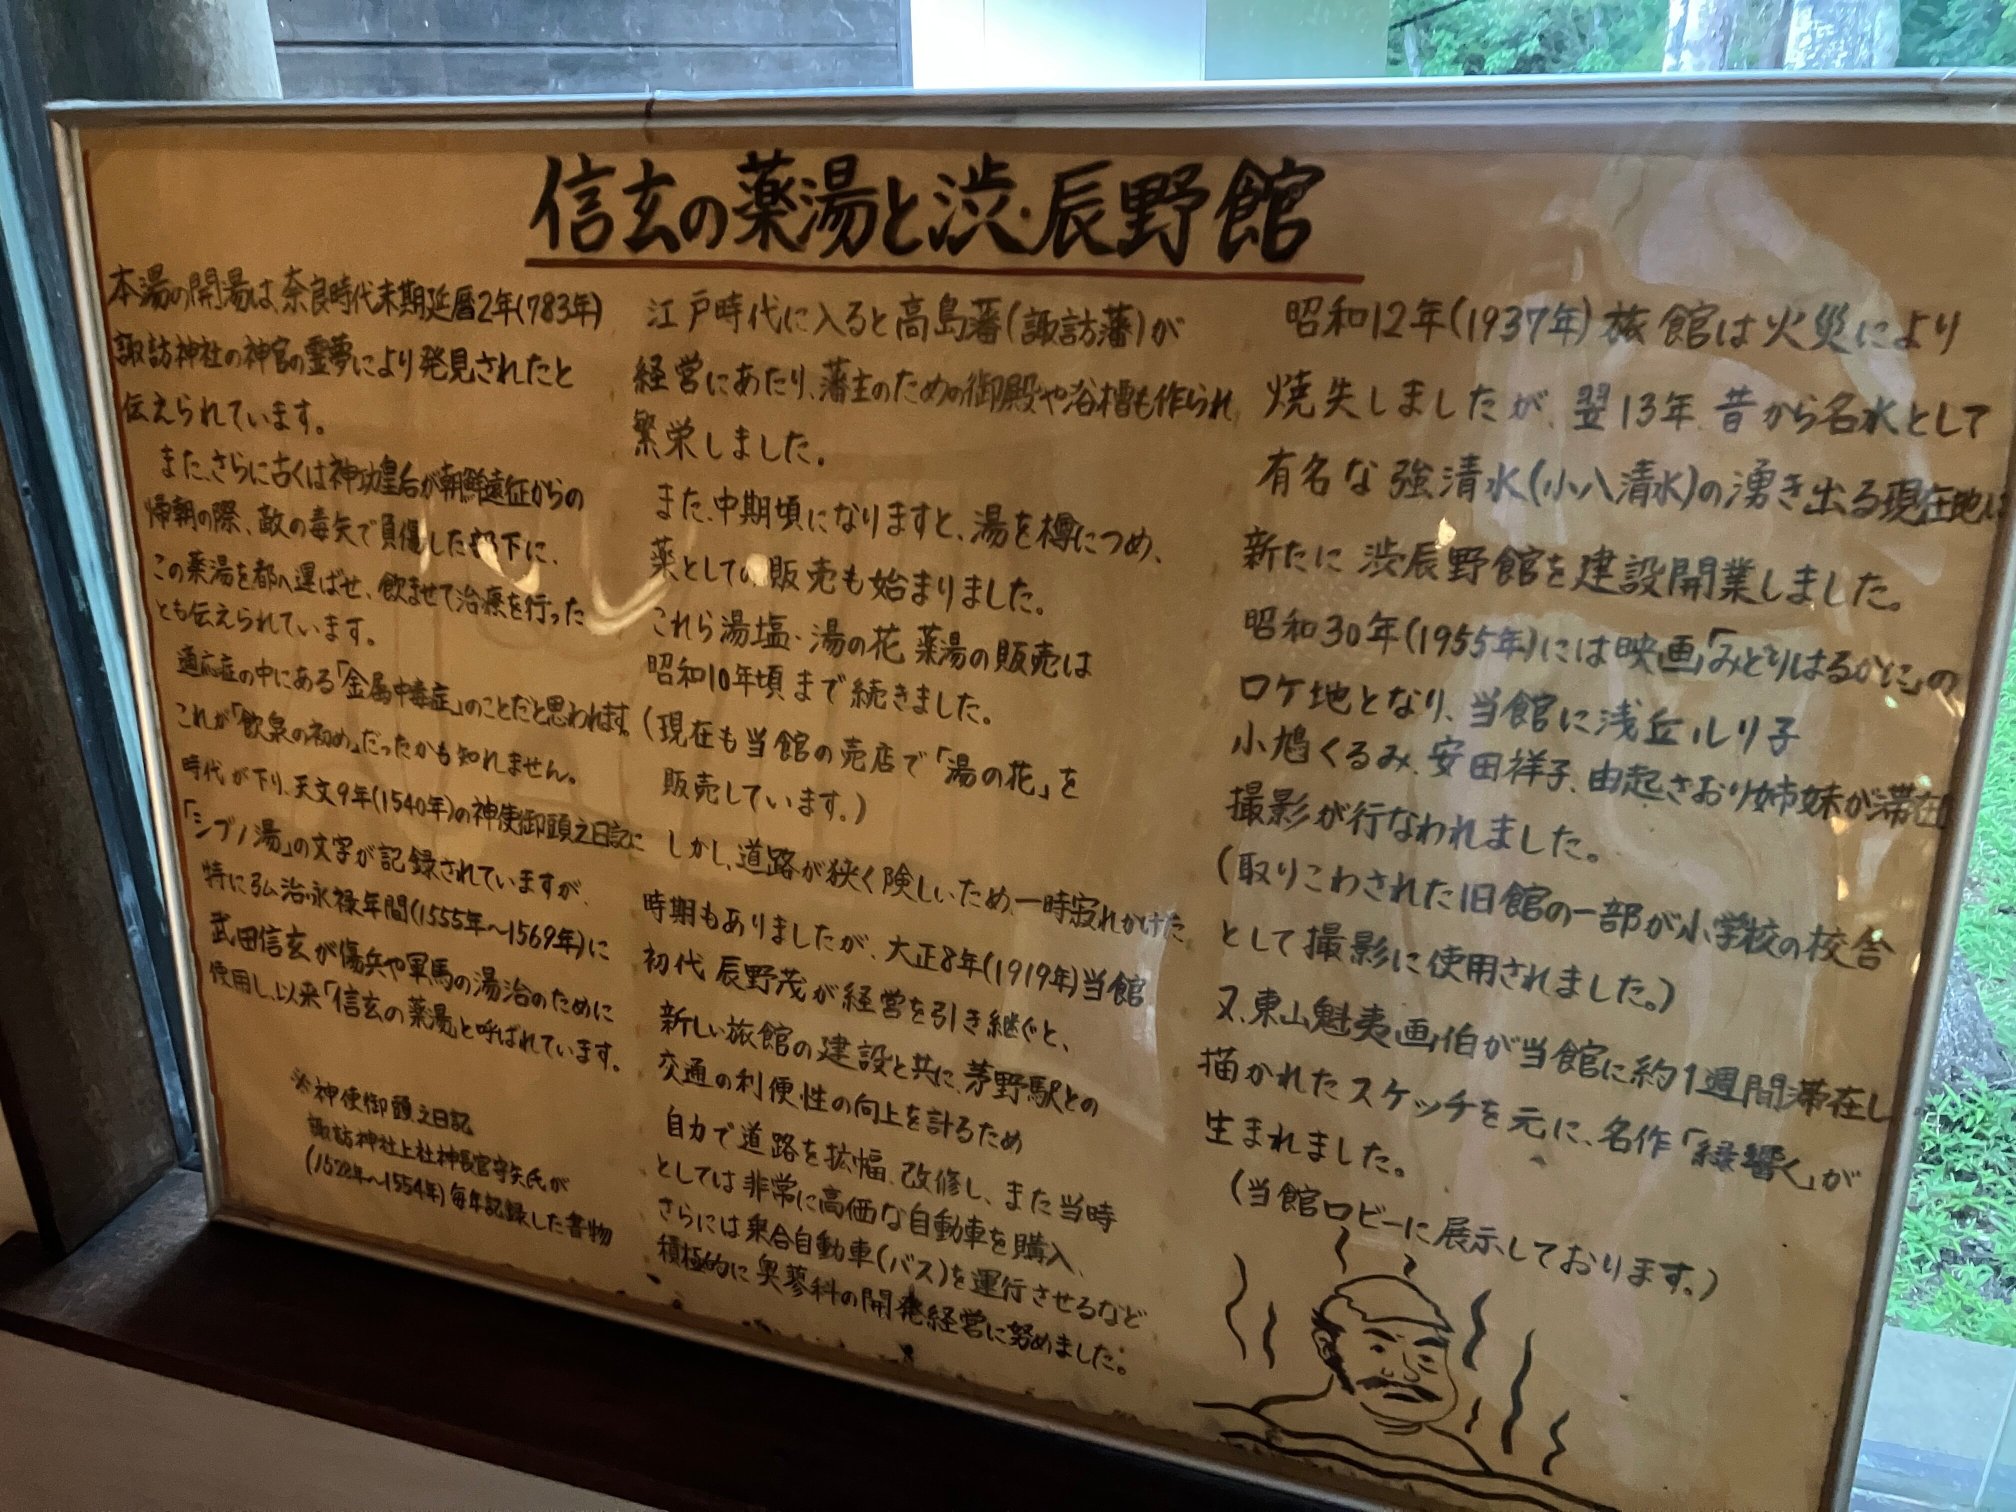 信玄の薬湯と渋・辰野館
本湯の開湯は、奈良時代末期延暦2年(783年)
諏訪神社の神官の霊夢により発見されたと
伝えられています。
また、さらに古くは神功皇后が朝鮮遠征からの
帰朝の際、敵の毒矢で負傷した部下に、
この薬湯を都へ運ばせ、飲ませて治療を行った
とも伝えられています。
適応症の中にある「金属中毒症」のことだと思われます。
これが「飲泉の初め」だったかも知れません。
時代が下り、天文9年(1540年)の神使御頭之日記に
「シブノ湯」の文字が記録されていますが、
特に弘治・永禄年間(1555年〜1569年)に
武田信玄が傷兵や軍馬の湯治のために
使用し、以来「信玄の薬湯」と呼ばれています。
※神使御頭之日記
諏訪神社上社神長官守矢氏が
(1528年〜1554年)毎年記録した書物
江戸時代に入ると高島藩(諏訪藩)が
経営にあたり、藩主のための御殿や浴槽も作られ
繁栄しました。
また、中期頃になりますと、湯を樽につめ、
薬としての販売も始まりました。
これら湯塩・湯の花 薬湯の販売は
昭和10年頃まで続きました。
(現在も当館の売店で「湯の花」を
販売しています。)
しかし、道路が狭く険しいため、一時寂れかけた
時期もありましたが、大正8年(1919年)当館
初代 辰野茂が経営を引き継ぐと、
新しい旅館の建設と共に、茅野駅との
交通の利便性の向上を計るため
自力で道路を拡幅、改修し、また当時
としては非常に高価な自動車を購入、
さらには乗合自動車(バス)を運行させるなど
積極的に奥蓼科の開発経営に努めました。
昭和12年(1937年)旅館は火災により
焼失しましたが、翌13年、昔から名水として
有名な強清水(小八清水)の湧き出る現在地に
新たに渋・辰野館を建設開業しました。
昭和30年(1955年)には映画「みどりはるかに」の
ロケ地となり、当館に浅丘ルリ子
小鳩くるみ、安田祥子、由起さおり姉妹が滞在
撮影が行なわれました。
(取りこわされた旧館の一部が小学校の校舎
として撮影に使用されました。)
又、東山魁夷画伯が当館に約1週間滞在し
描かれたスケッチを元に、名作「緑響く」が
生まれました。
(当館ロビーに展示しております。)